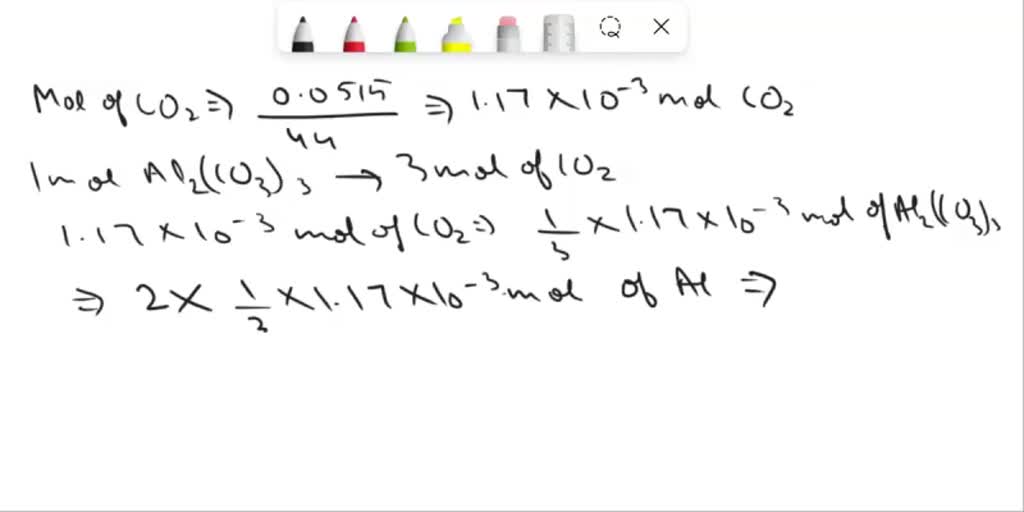 Mol of CO2 ⇒ 0.0515/44 ⇒ 1.17 × 10^-3 mol CO2
1 mol Al2(CO3)3 → 3 mol of CO2
1.17 × 10^-3 mol of CO2 ⇒ 1/3 × 1.17 × 10^-3 mol of Al2(CO3)3
⇒ 2 × 1/3 × 1.17 × 10^-3 mol of Al ⇒